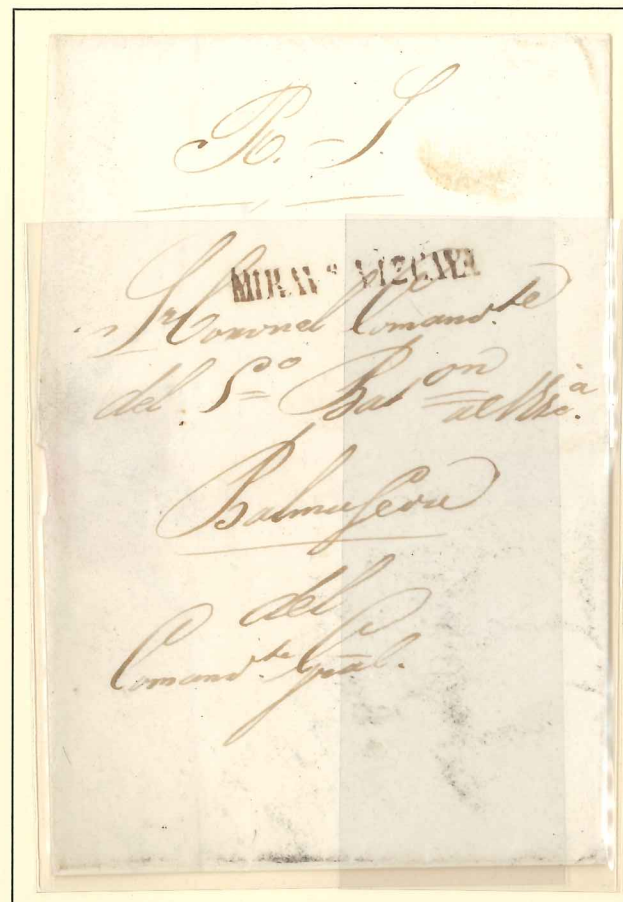 R. - S.
VIZCAYA
Sr Coronel Comand.te
del 5º Bat.on de
Balmaseda
del
Comand.te Gral.